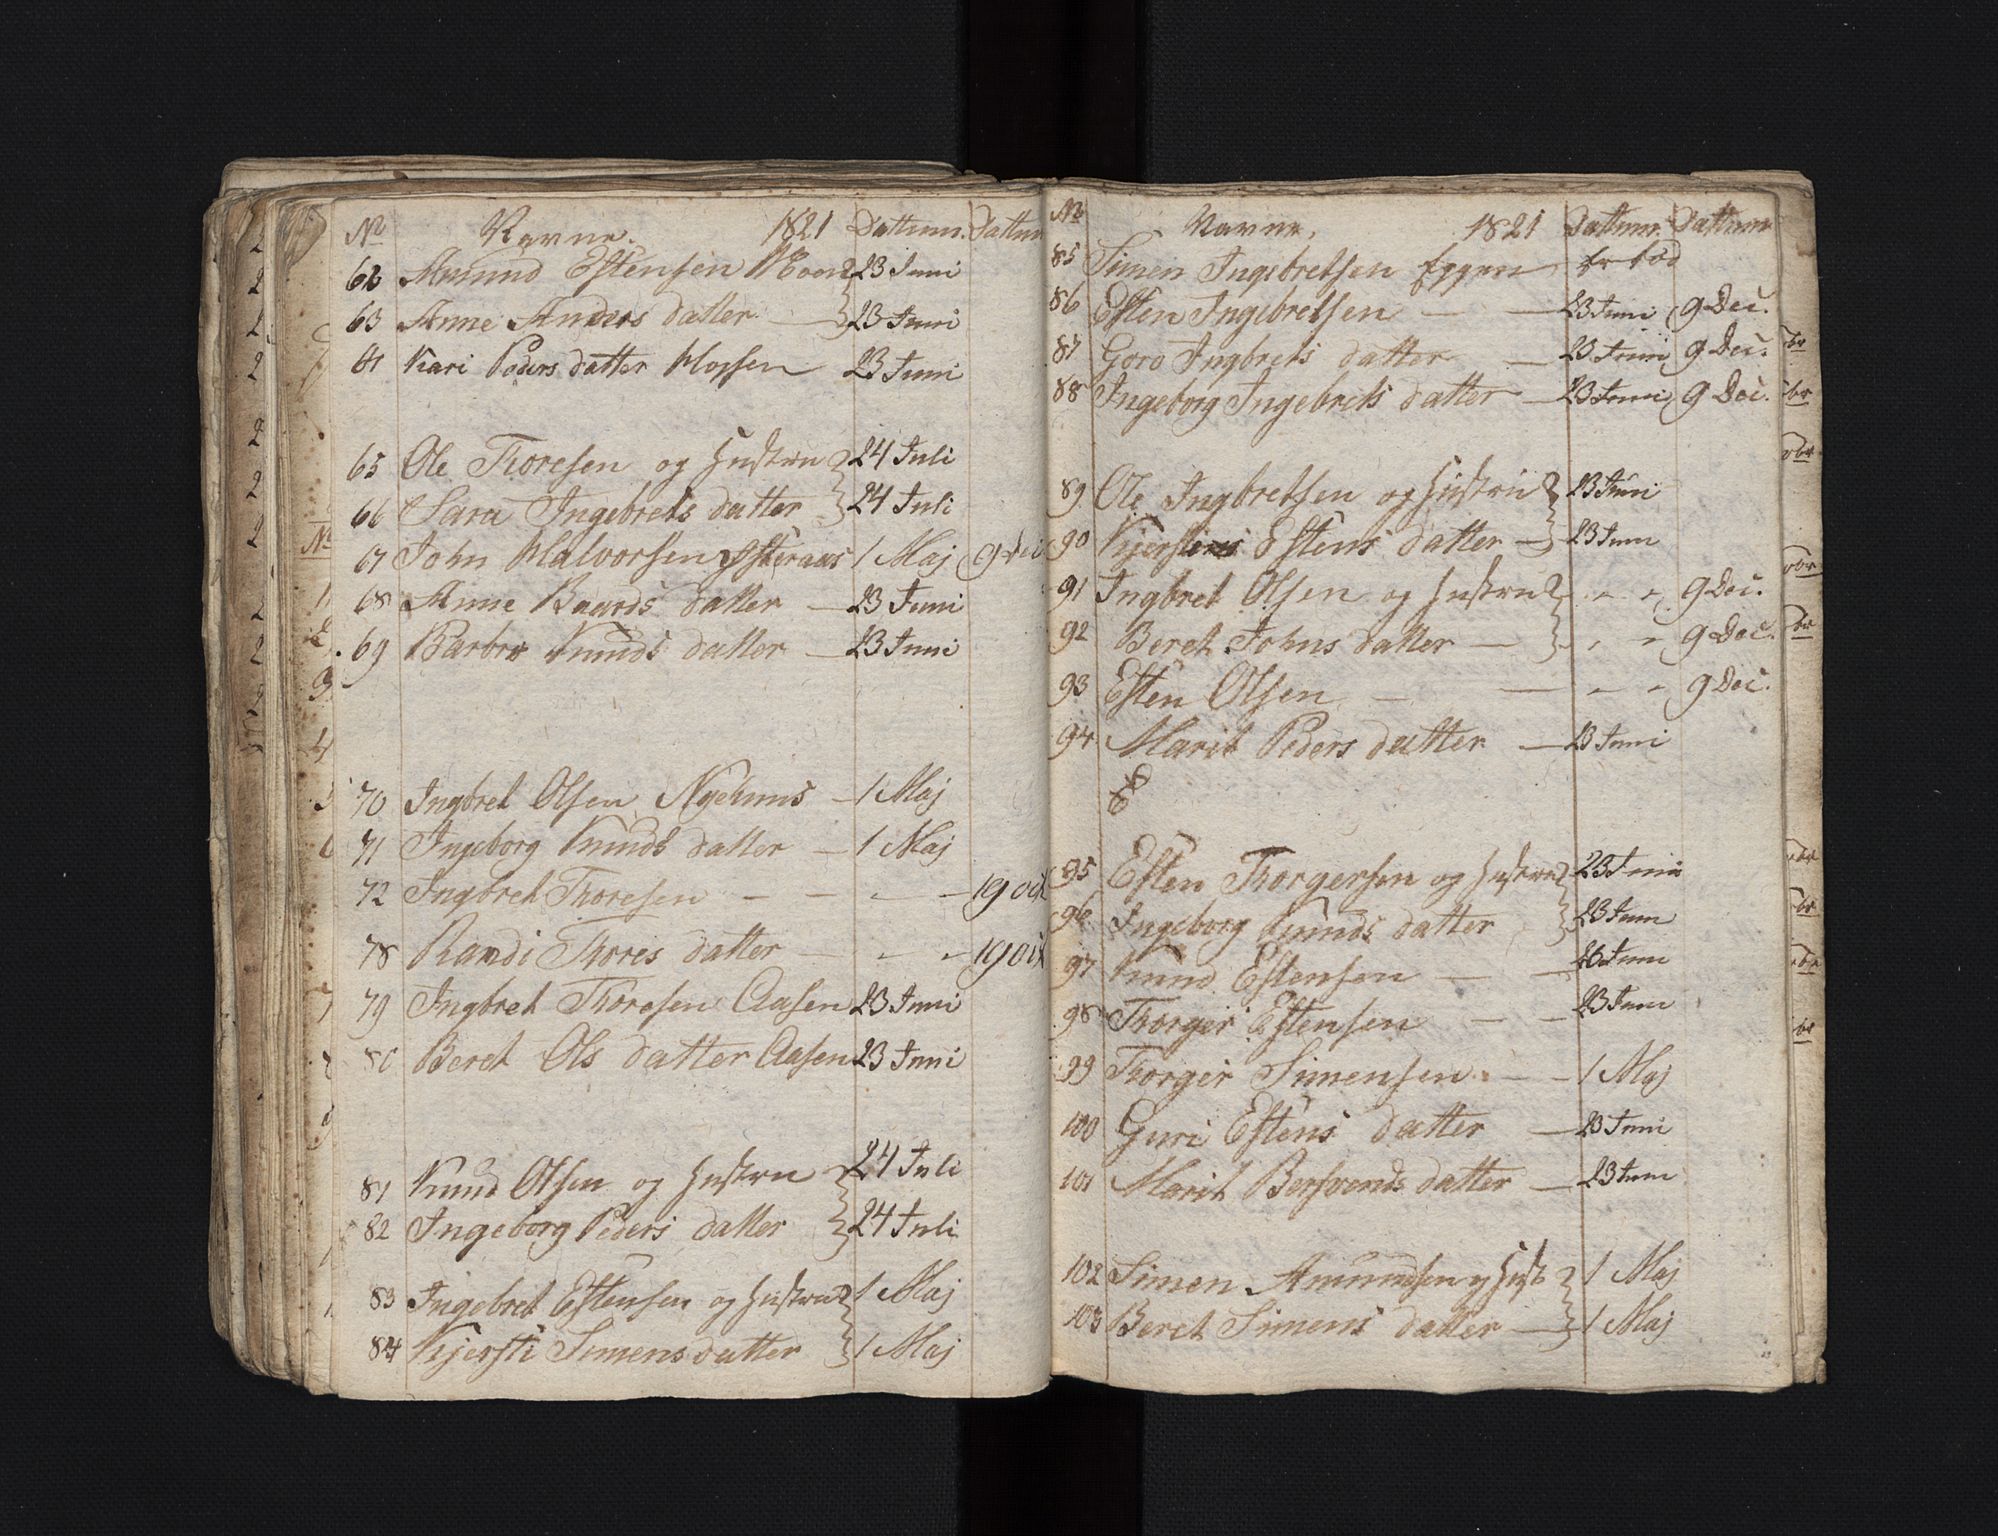 No Navne. 1821 Dattum. Dattum
62 Amund Estensen Moen 23 Juni
63 Anne Anders datter — 23 Juni
61 Kari Peders datter Mossen 23 Juni
65 Ole Thoresen og Hustru 24 Juli
66 Sara Ingebrets datter 24 Juli
67 John Halvorsen Østeraas 1 Maj 9 Dec
68 Anne Baards datter — 23 Juni
69 Barbro Knuds datter — 23 Juni
70 Ingbret Olsen Nyehuus — 1 Maj
71 Ingeborg Knuds datter — 1 Maj
72 Ingbret Thoresen — — — — 19 Oct
78 Randi Thores datter — — — 19 Oct
79 Ingbret Thoresen Aasen 23 Juni
80 Beret Ols datter Aasen 23 Juni
81 Knud Olsen og Hustru 24 Juli
82 Ingeborg Peders datter 24 Juli
83 Ingebret Estensen og Hustru 1 Maj
84 Kjersti Simens datter 1 Maj
No Navne. 1821 Dattum. Dattum
85 Simen Ingebretsen Eggen er död
86 Esten Ingebretsen — — 23 Juni 9 Dec.
87 Goro Ingbrets datter — 23 Juni 9 Dec.
88 Ingeborg Ingebrets datter — 23 Juni 9 Dec.
89 Ole Ingbretsen og Hustru 23 Juni
90 Kjersten Estens datter — 23 Juni
91 Ingbret Olsen og Hustru - - - 9 Dec.
92 Beret Johns datter — - - 9 Dec.
93 Esten Olsen — — - - 9 Dec.
94 Marit Peders datter — 23 Juni
95 Esten Thorgersen og Hustru 23 Juni
96 Ingeborg Knuds datter 23 Juni
97 Knud Estensen — — 26 Juni
98 Thorger Estensen — — 23 Juni
99 Thorger Simensen — — 1 Maj
100 Guri Estens datter — 23 Juni
101 Marit Bersvends datter — 23 Juni
102 Simen Amundsen og Hust 1 Maj
103 Beret Simens datter — 1 Maj